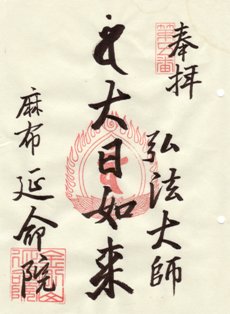 奉拝
弘法大師
大日如来
麻布 延命院